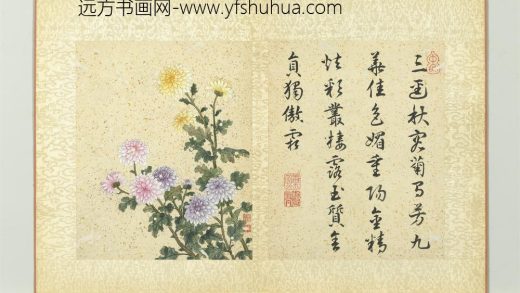 远方书画网-www.yfshuhua.com
三逕秋容菊有芳九
華佳色媚重陽金精
炫彩叢棲露玉質含
貞獨傲霜